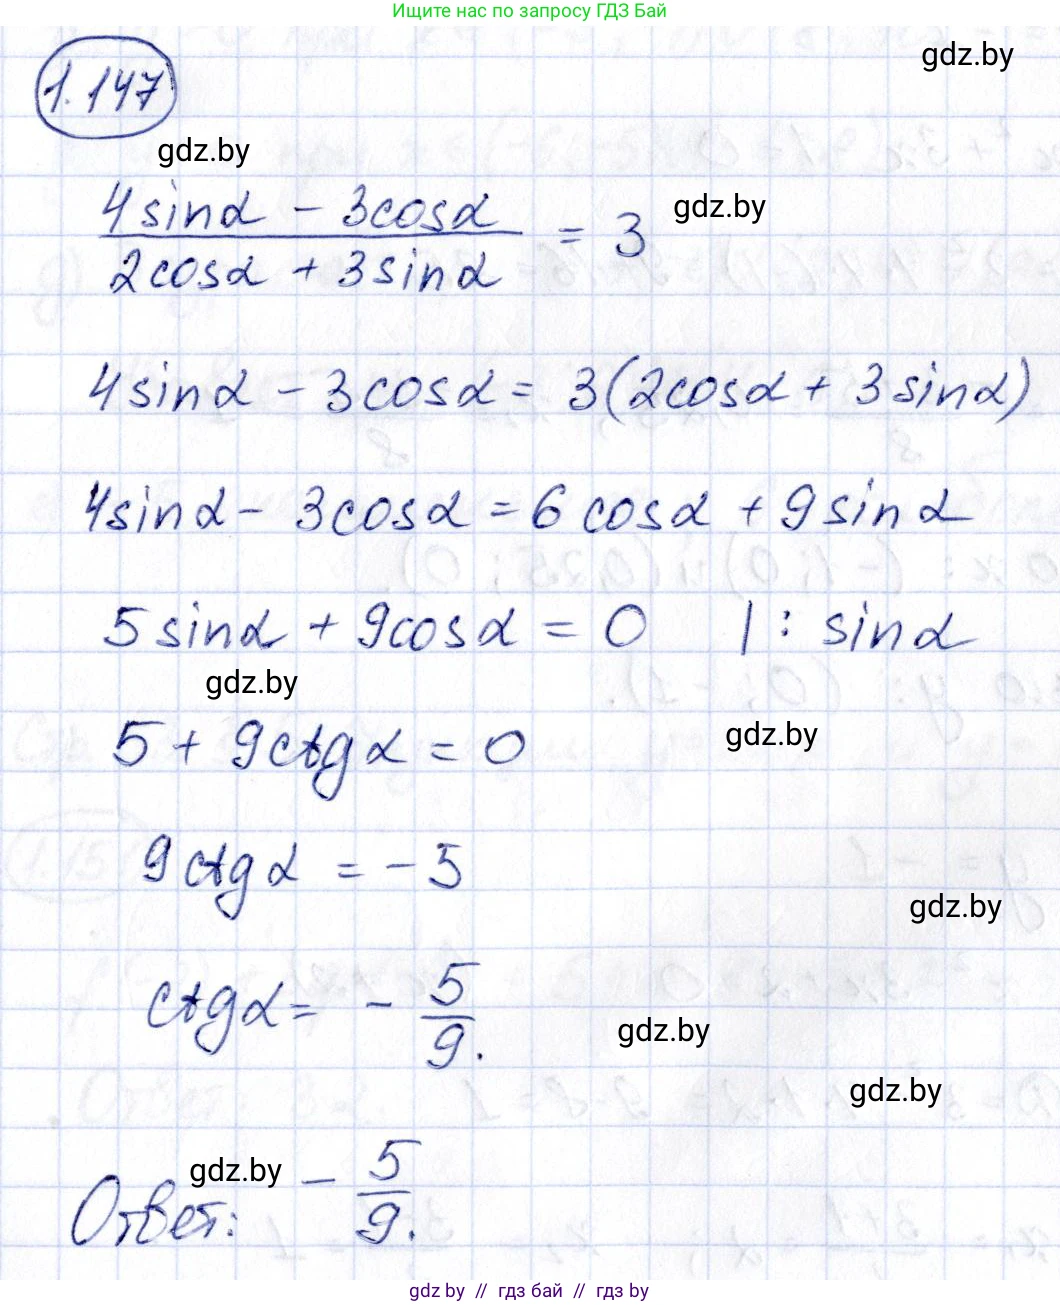 Ищите нас по запросу ГДЗ Бай
gdz.by
1.147
gdz.by
4sinα - 3cosα / 2cosα + 3sinα = 3
gdz.by
4sinα - 3cosα = 3(2cosα + 3sinα)
4sinα - 3cosα = 6cosα + 9sinα
5sinα + 9cosα = 0 |: sinα
gdz.by
5 + 9ctgα = 0
gdz.by
9ctgα = -5
gdz.by
ctgα = - 5/9.
gdz.by
gdz.by
gdz.by
Ответ: - 5/9.
gdz.by // гдз бай // гдз by